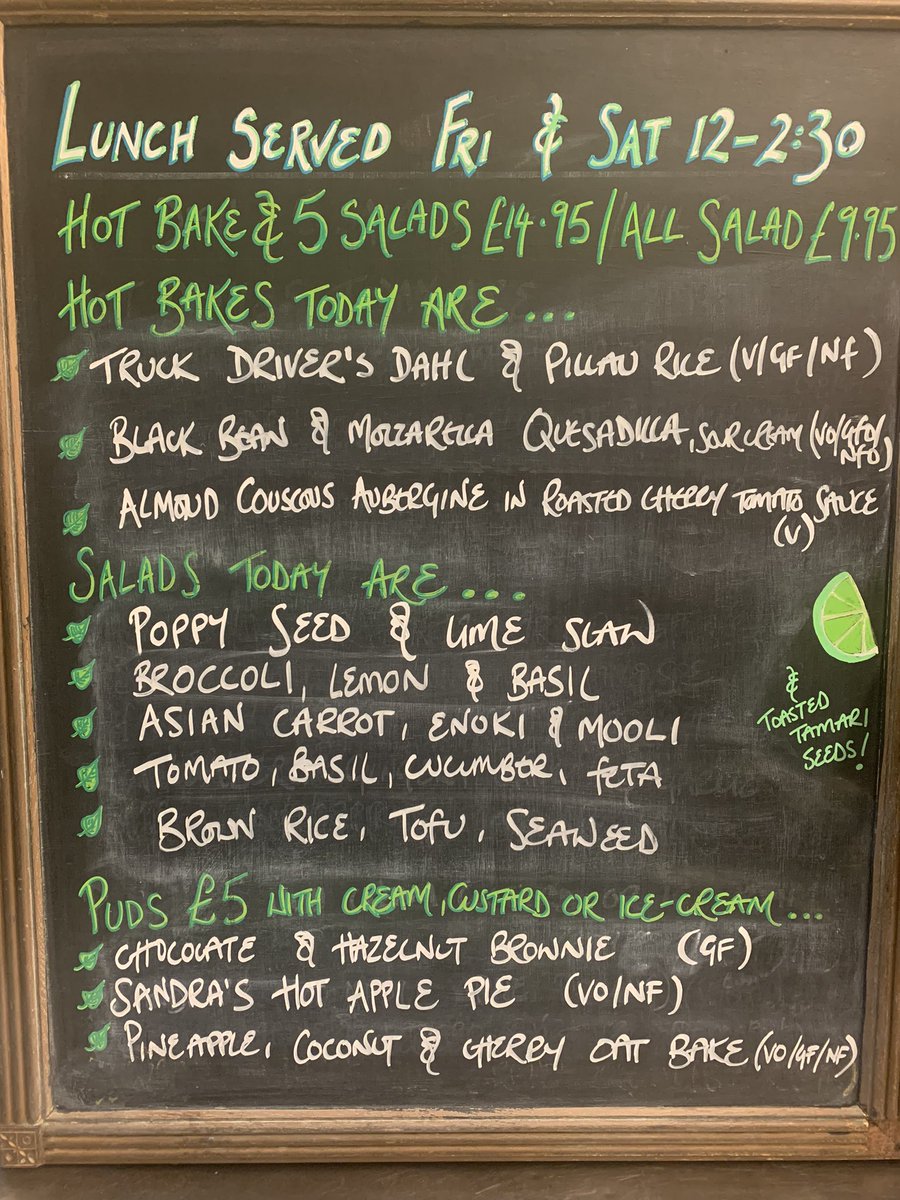 LUNCH SERVED FRI & SAT 12-2:30
HOT BAKE & 5 SALADS £14.95/ALL SALAD £9.95
HOT BAKES TODAY ARE...
TRUCK DRIVER'S DAHL & PILLAU RICE (V/GF/NF)
BLACK BEAN & MOZZARELLA QUESADILLA, SOUR CREAM (VO/GFO/
NFO)
ALMOND COUSCOUS AUBERGINE IN ROASTED CHERRY TOMATO SAUCE
(V)
SALADS TODAY ARE...
POPPY SEED & LIME SLAW
BROCCOLI, LEMON & BASIL
ASIAN CARROT, ENOKI & MOOLI
TOMATO, BASIL, CUCUMBER, FETA
BROWN RICE, TOFU, SEAWEED
&
TOASTED
TAMARI
SEEDS!
PUDS £5 WITH CREAM, CUSTARD OR ICE-CREAM...
CHOCOLATE & HAZELNUT BROWNIE (GF)
SANDRA'S HOT APPLE PIE (VO/NF)
PINEAPPLE, COCONUT & CHERRY OAT BAKE (VO/GF/NF)